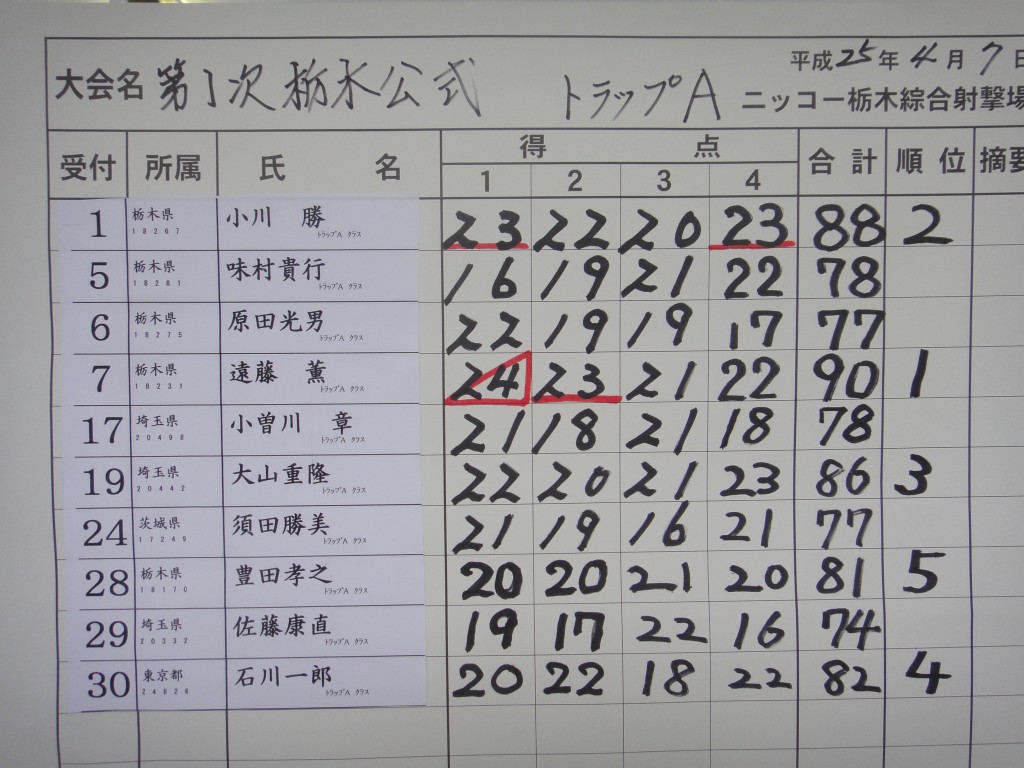 平成25年4月7日
大会名 第1次栃木公式 トラップA ニッコー栃木綜合射撃場
受付 所属 氏 名 得 点 合計 順位 摘要
1 2 3 4
1 栃木県 小川 勝 23 22 20 23 88 2
18267 トラップA クラス
5 栃木県 味村貴行 16 19 21 22 78
18281 トラップA クラス
6 栃木県 原田光男 22 19 19 17 77
18275 トラップA クラス
7 栃木県 遠藤 薫 24 23 21 22 90 1
18231 トラップA クラス
17 埼玉県 小曽川 章 21 18 21 18 78
20498 トラップA クラス
19 埼玉県 大山重隆 22 20 21 23 86 3
20442 トラップA クラス
24 茨城県 須田勝美 21 19 16 21 77
17249 トラップA クラス
28 栃木県 豊田孝之 20 20 21 20 81 5
18170 トラップA クラス
29 埼玉県 佐藤康直 19 17 22 16 74
20332 トラップA クラス
30 東京都 石川一郎 20 22 18 22 82 4
24826 トラップA クラス